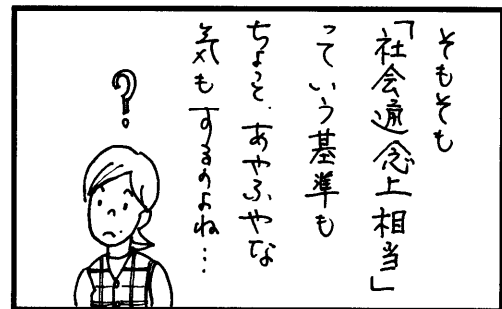 そもそも
「社会通念上相当」
っていう基準も
ちょっと、あやふやな
気もするのよね…
?